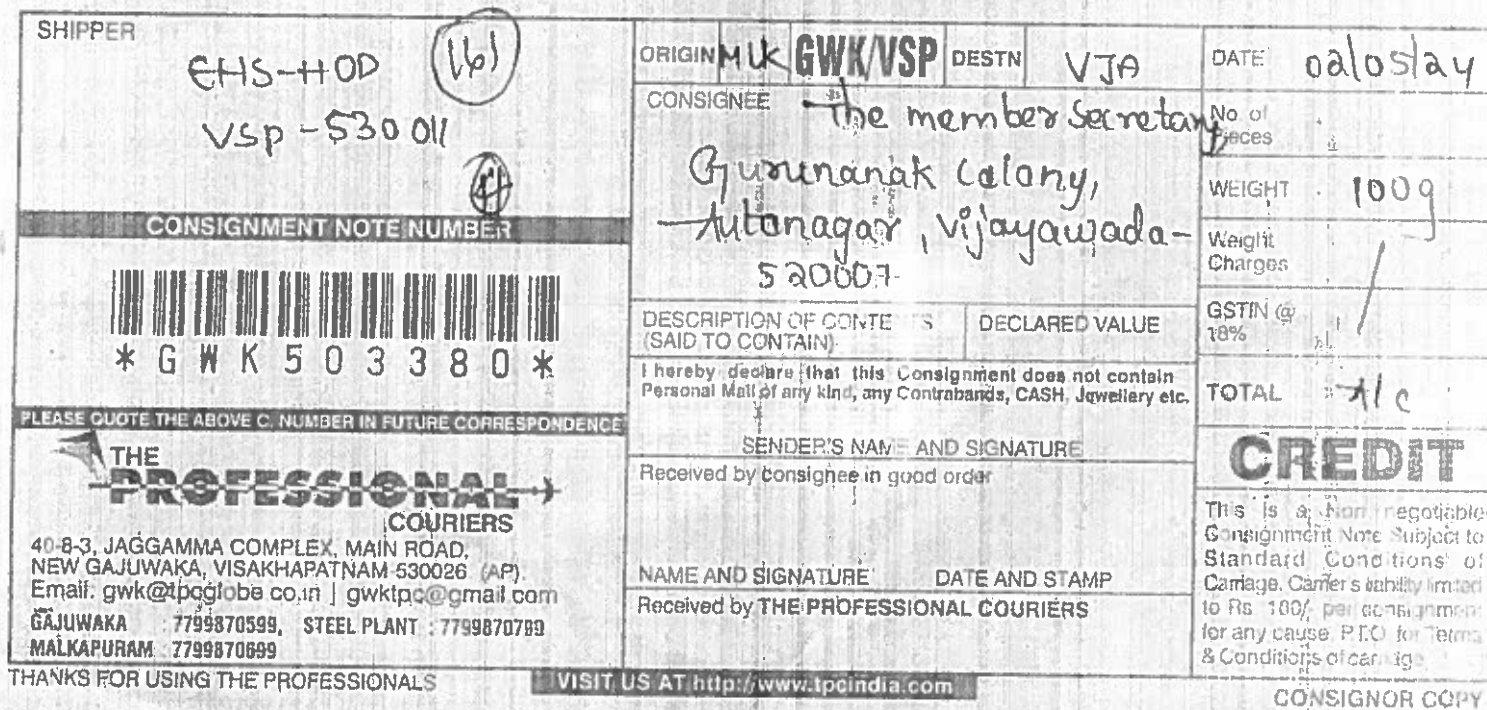 SHIPPER
EHS-HOD
VSP - 530 011
CONSIGNMENT NOTE NUMBER
*GWK503380*
PLEASE QUOTE THE ABOVE C. NUMBER IN FUTURE CORRESPONDENCE
THE
PROFESSIONAL
COURIERS
40-8-3, JAGGAMMA COMPLEX, MAIN ROAD,
NEW GAJUWAKA, VISAKHAPATNAM-530026 (AP).
Email: gwk@tpcglobe.co.in | gwktpc@gmail.com
GAJUWAKA : 7799870599, STEEL PLANT : 7799870799
MALKAPURAM : 7799870699
THANKS FOR USING THE PROFESSIONALS
ORIGIN MLK GWK/VSP DESTN VJA
CONSIGNEE The member Secretary
Gurunanak Colony,
Autonagar, Vijayawada-
520007
DESCRIPTION OF CONTENTS
(SAID TO CONTAIN)
DECLARED VALUE
I hereby declare that this Consignment does not contain
Personal Mail of any kind, any Contrabands, CASH, Jewellery etc.
SENDER'S NAME AND SIGNATURE
Received by consignee in good order
NAME AND SIGNATURE DATE AND STAMP
Received by THE PROFESSIONAL COURIERS
VISIT US AT http://www.tpcindia.com
DATE 02/05/24
No. of
Pieces
WEIGHT 100g
Weight
Charges
GSTIN @
18%
TOTAL A/c
CREDIT
This is a Non negotiable
Consignment Note Subject to
Standard Conditions of
Carriage. Carrier's liability limited
to Rs. 100/- per consignment
for any cause. P.T.O. for Terms
& Conditions of carriage
CONSIGNOR COPY